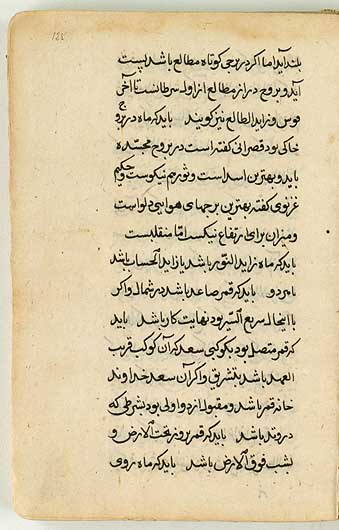 125
بلند آید اما اکر در برجی کوتاه مطالع باشد پست
آید و بروج دراز مطالع از اول سرطانست تا آخر
قوس و زاید الطالع نیز کویند باید که ماه در بروج
خاکی بود قصرانی کفته است در بروج مجتده
باید و بهترین اسد است و ثور هم نیکوست و حکیم
غزنوی کفته بهترین برجهای هوایی دلو است
و میزان برای ارتفاع نیکست اما منقلبست
باید که ماه زاید النور باشد یا زاید الحساب باشد
یا هر دو باید که قمر صاعد باشد در شمال و اکر
با اینحال سریع السیر بود نهایت کار باشد باید
که قمر متصل بود بکوکبی سعد که آن کوکب قریب
العهد باشد بتشریق و اکر آن سعد خداوند
خانه قمر باشد و مقبول ازو اولی بود بشرطی که
در وتد باشد باید که قمر بروز تحت الارض و
بشب فوق الارض باشد باید که ماه روی